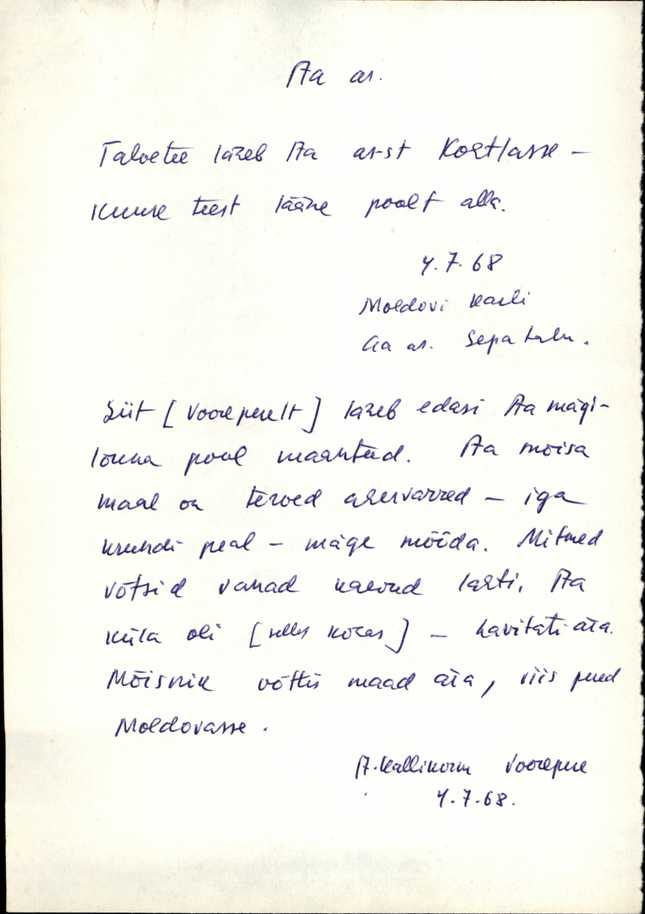 Aa as.
Talvetee läheb Aa as-st Kohtlasse –
Kuuse teest lääne poolt alla.
4.7.68
Moldovi Kaarli
Aa as. Sepa talu.
Siit [Voorepeelt] läheb edasi Aa mägi-
lõuna pool maanteed. Aa mõisa
maal on terved asevarred – iga
krundi peal – mäge mööda. Mitmed
võtsid vanad kaevud lahti. Aa
küla oli [selles kohas] – hävitati ära.
Mõisnik võttis maad ära, viis pered
Moldovasse.
A. Kallikorm Voorepere
4.7.68.